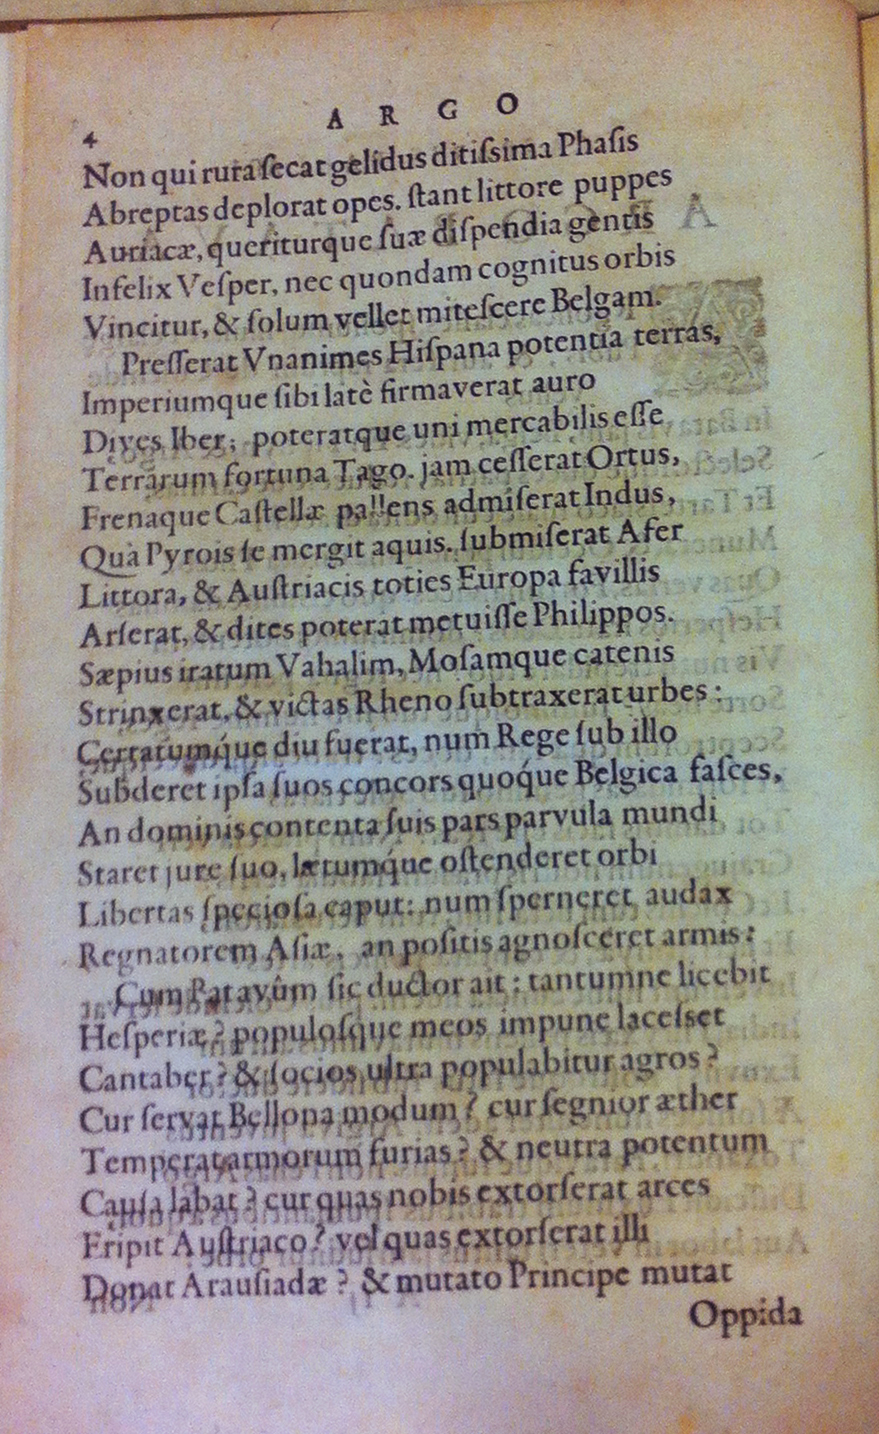 ARGO
4
Non qui rura ſecat gelidus ditiſsima Phaſis
Abreptas deplorat opes. ſtant littore puppes
Auriacæ, queriturque ſuæ diſpendia gentis
Infelix Veſper, nec quondam cognitus orbis
Vincitur, & ſolum vellet miteſcere Belgam.
Preſſerat Vnanimes Hiſpana potentia terras,
Imperiumque ſibi latè firmaverat auro
Dives Iber; poteratque uni mercabilis eſſe
Terrarum fortuna Tago. jam ceſſerat Ortus,
Frenaque Caſtellæ pallens admiſerat Indus,
Quà Pyrois ſe mergit aquis. ſubmiſerat Afer
Littora, & Auſtriacis toties Europa favillis
Arſerat, & dites poterat metuiſſe Philippos.
Sæpius iratum Vahalim, Moſamque catenis
Strinxerat, & victas Rheno ſubtraxerat urbes:
Certatumque diu fuerat, num Rege ſub illo
Subderet ipſa ſuos concors quoque Belgica faſces,
An dominis contenta ſuis pars parvula mundi
Staret jure ſuo, lætumque oſtenderet orbi
Libertas ſpecioſa caput: num ſperneret audax
Regnatorem Aſiæ, an poſitis agnoſceret armis:
Cum Batavûm ſic ductor ait: tantumne licebit
Heſperiæ? populoſque meos impune laceſset
Cantaber? & ſocios ultra populabitur agros?
Cur ſervat Bellona modum? cur ſegnior æther
Temperat armorum furias? & neutra potentum
Cauſa labat? cur quas nobis extorſerat arces
Eripit Auſtriaco? vel quas extorſerat illi
Donat Arauſiadæ? & mutato Principe mutat
Oppida